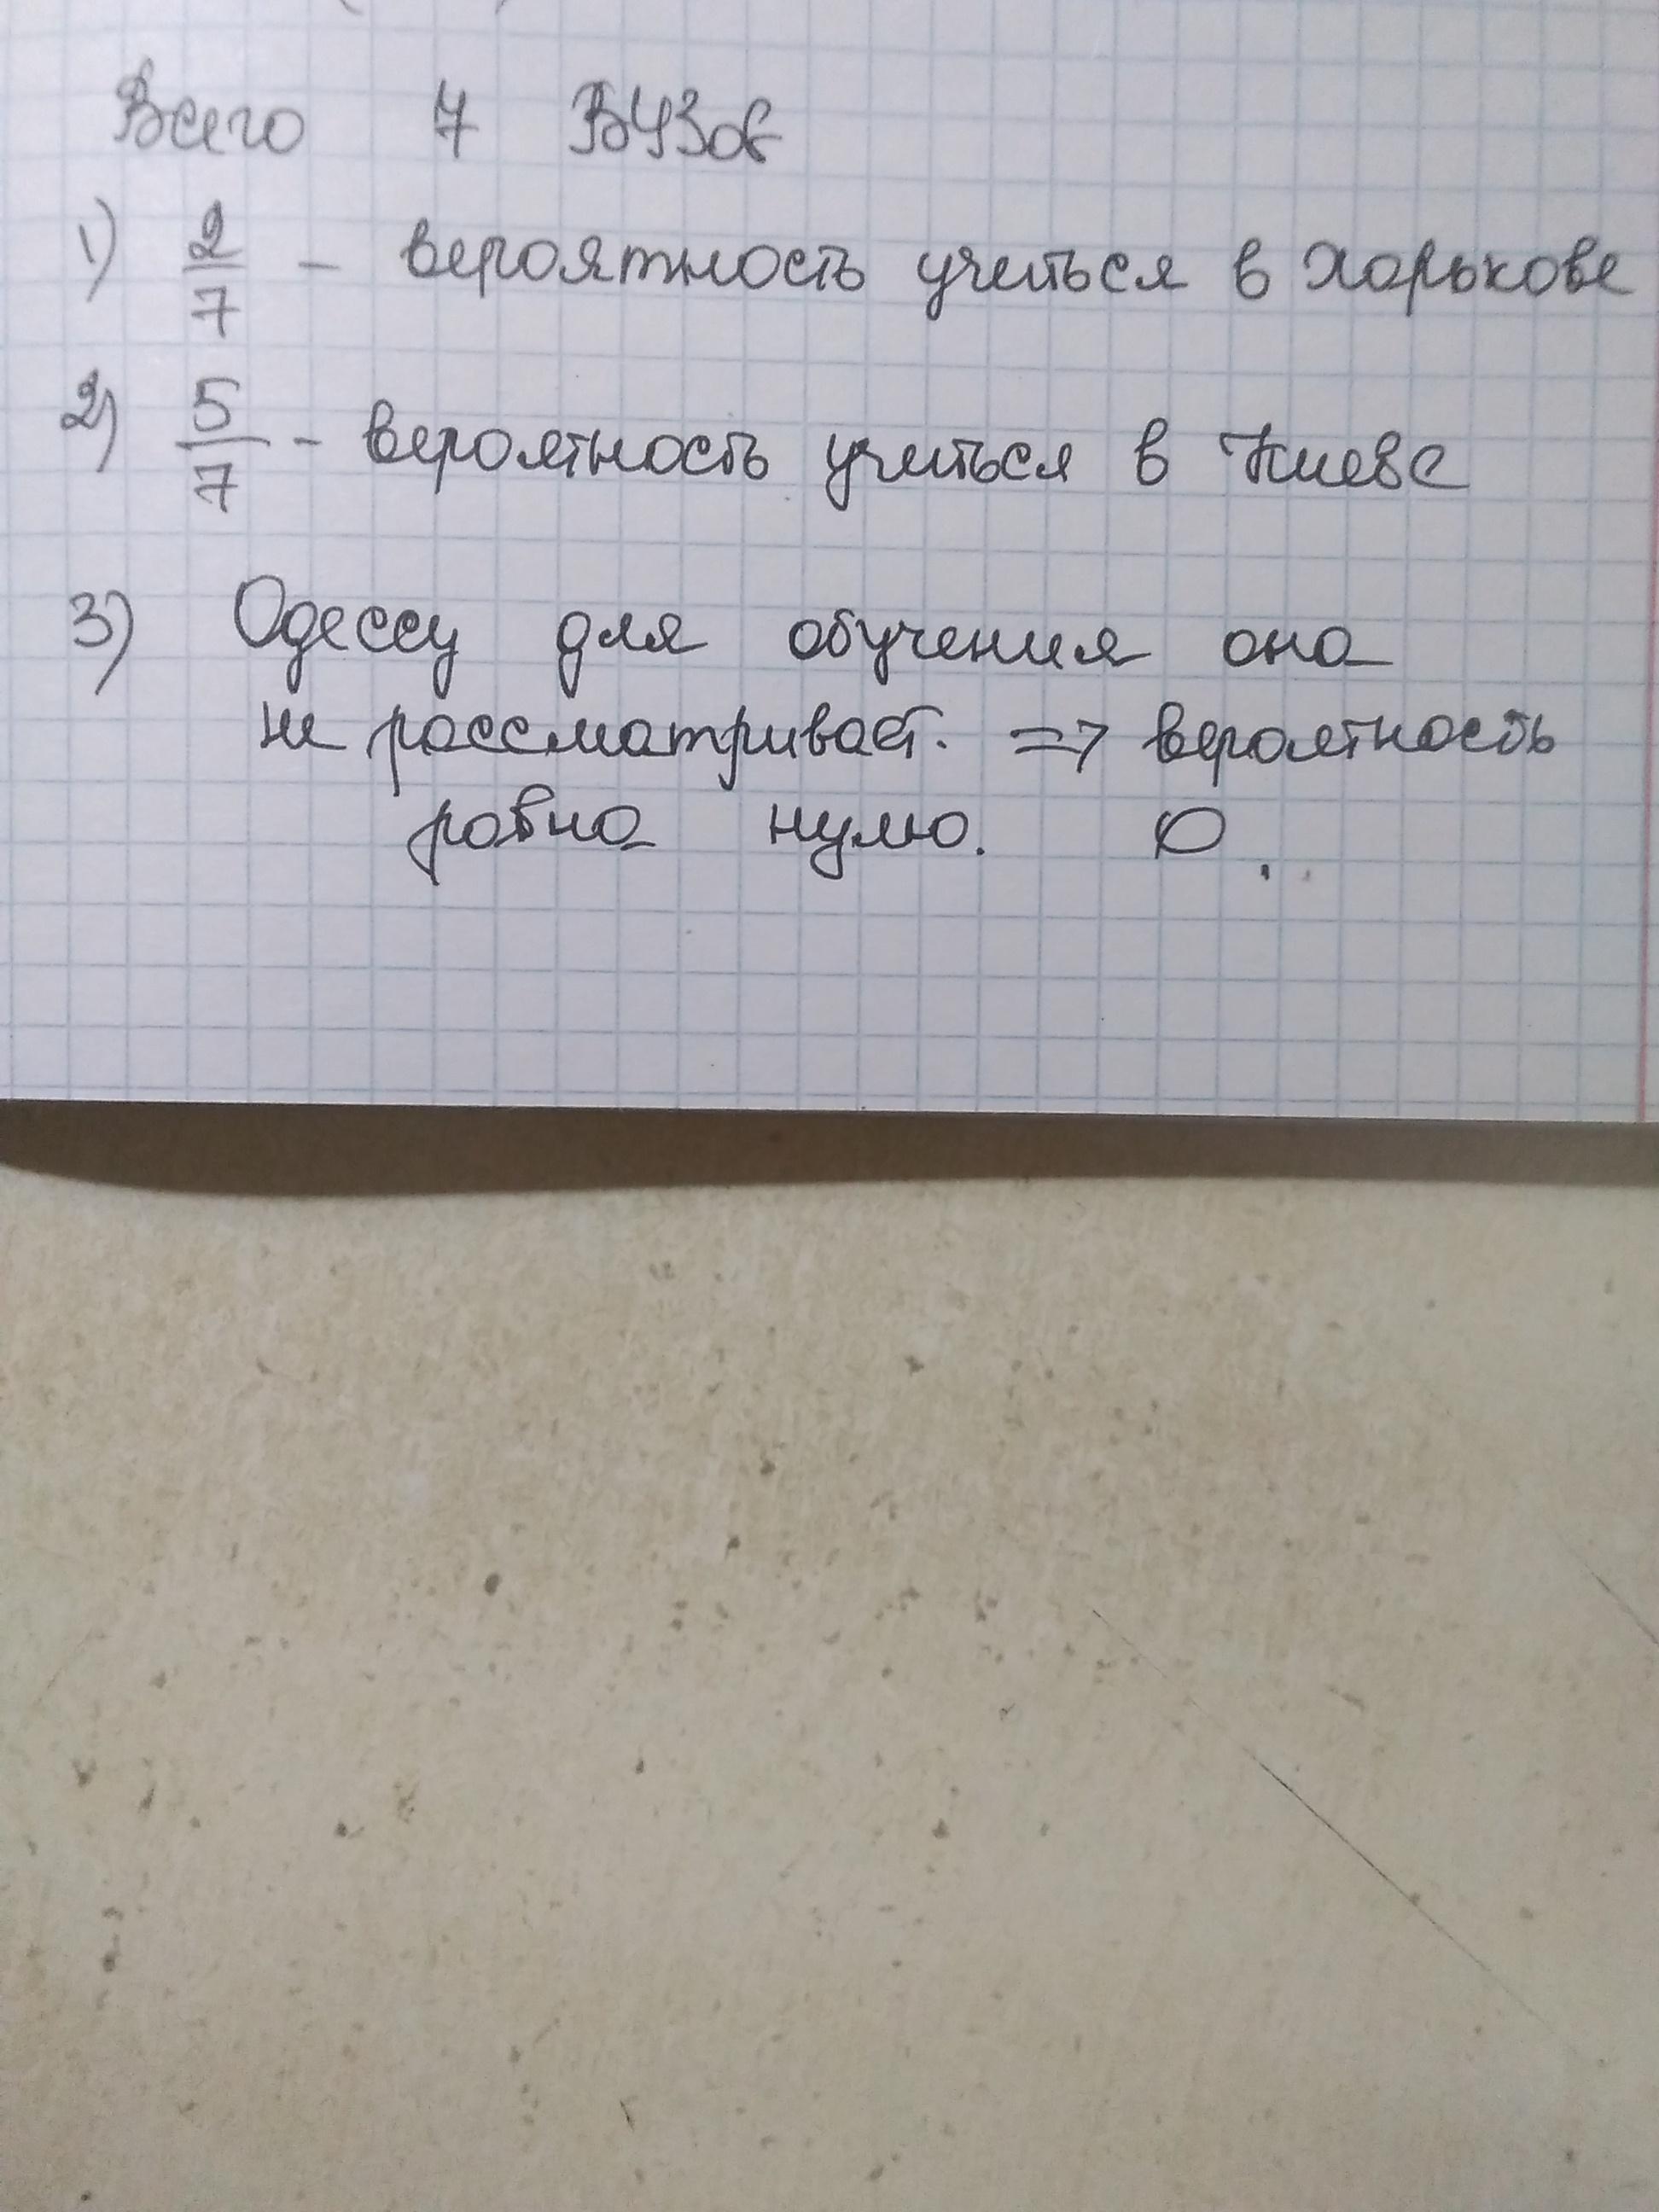 Всего 7 ВУЗов
1) 2/7 - вероятность учиться в Харькове
2) 5/7 - вероятность учиться в Киеве
3) Одессу для обучения она
не рассматривает. => вероятность
равна нулю. 0.